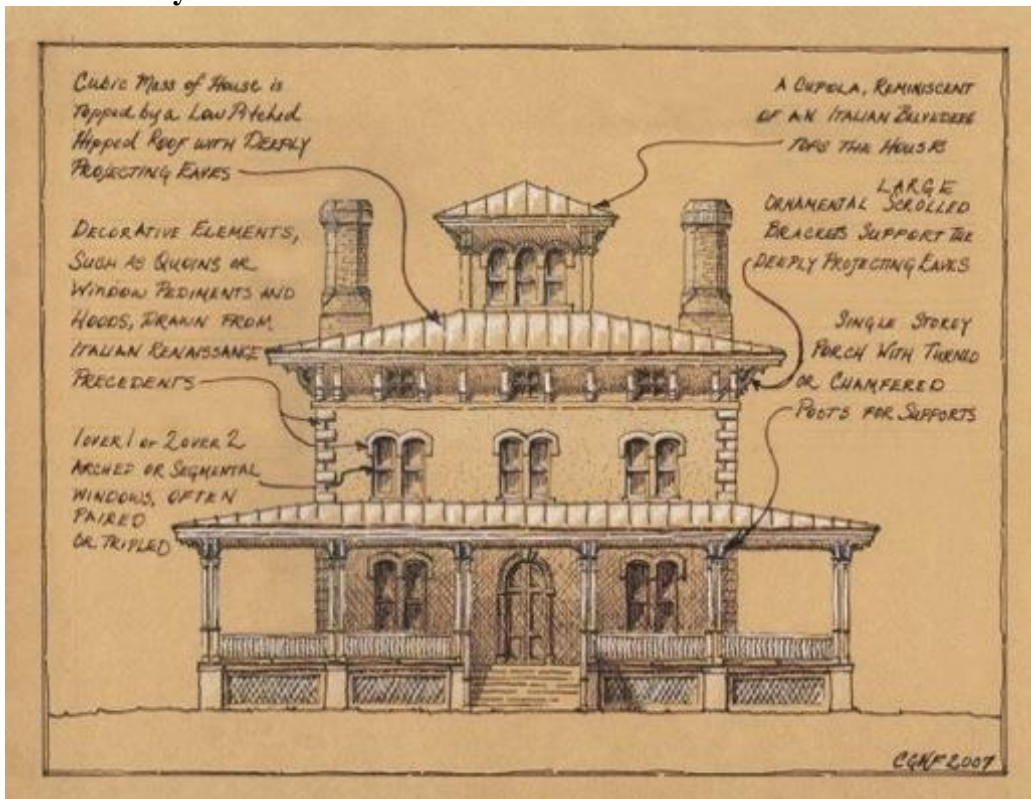 Cubic Mass of House is
Topped by a Low Pitched
Hipped Roof with Deeply
Projecting Eaves
Decorative Elements,
Such as Quoins or
Window Pediments and
Hoods, Drawn from
Italian Renaissance
Precedents
1 over 1 or 2 over 2
Arched or Segmental
Windows, often
Paired
or Tripled
A Cupola, Reminiscent
of an Italian Belvedere
Tops the House
Large
Ornamental Scrolled
Brackets Support the
Deeply Projecting Eaves
Single Storey
Porch with Turned
or Chamfered
Posts for Supports
CGKF 2007